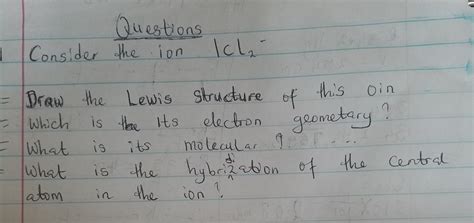 Questions
1 Consider the ion ICl2-
= Draw the Lewis Structure of this oin
= Which is the Its electron geometary?
= What is its molecular ? ...
= What is the hybridization of the central
atom in the ion?